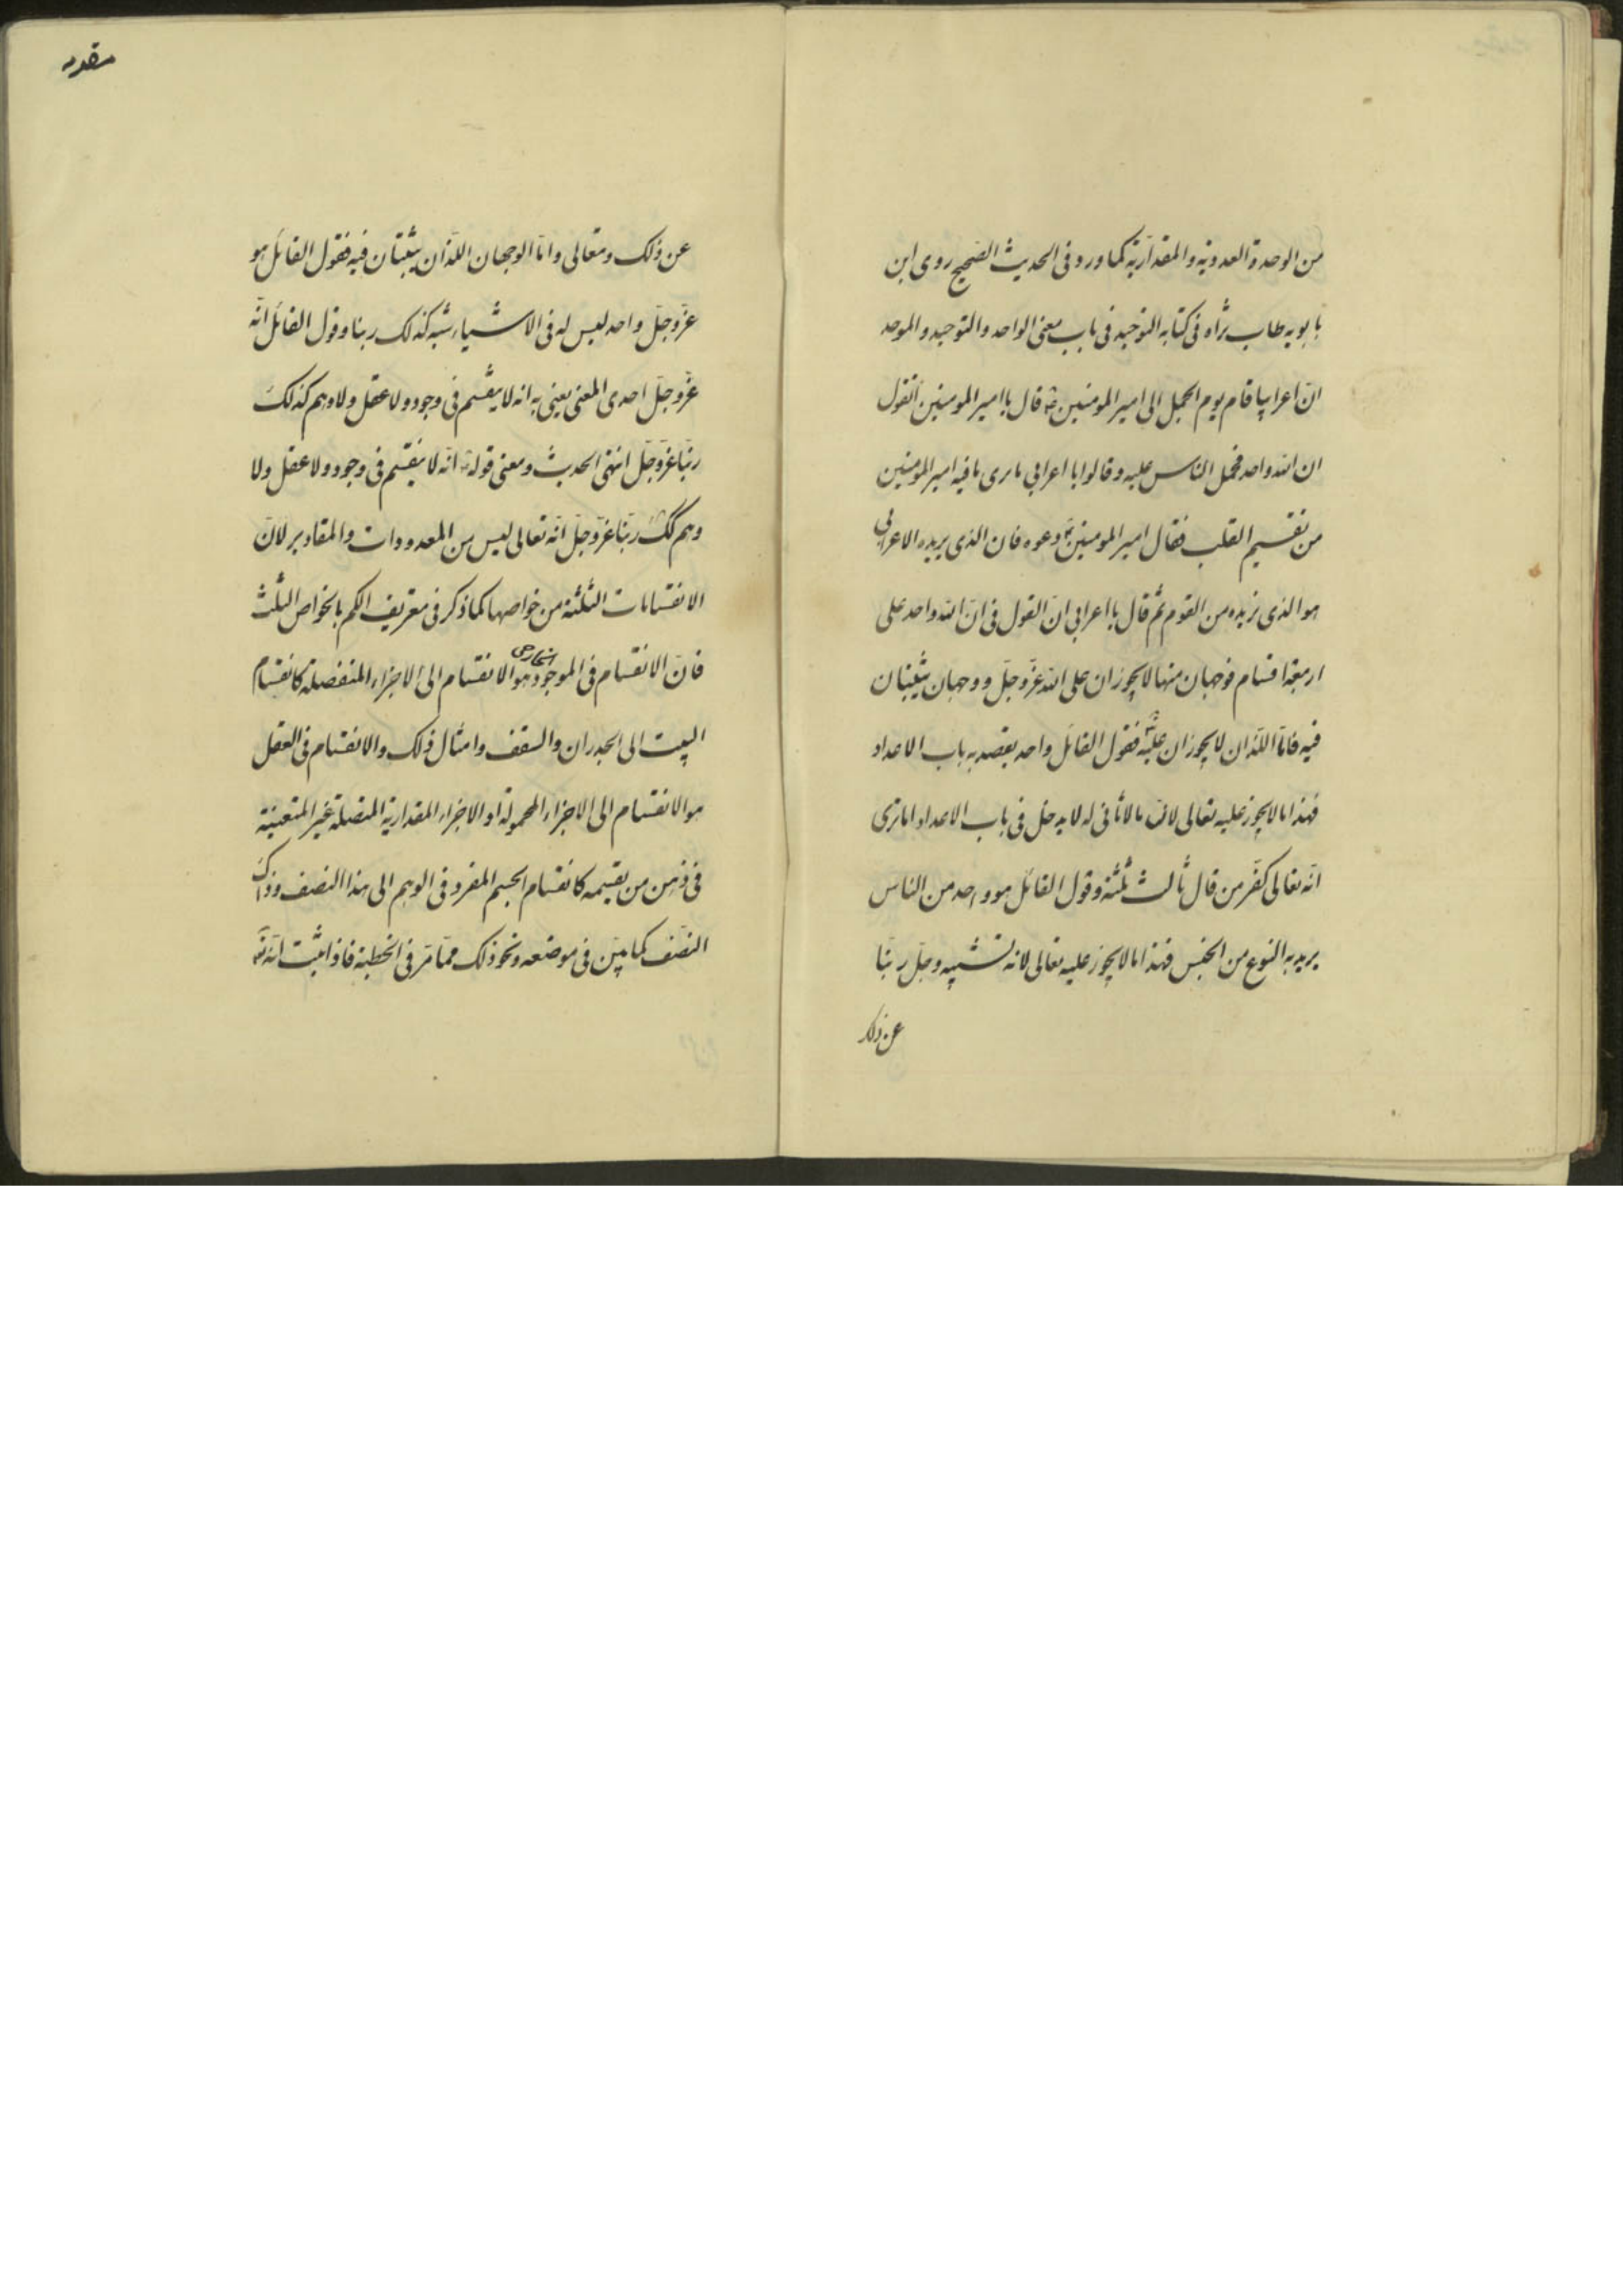 من الوحدة العددية والمقدارية كما ورد فى الحديث الصحيح روى ابن
بابويه طاب ثراه فى كتابه التوحيد فى باب معنى الواحد والتوحيد والموحد
ان اعرابيا قام يوم الجمل الى امير المومنين ع قال يا امير المومنين أتقول
ان الله واحد فحمل الناس عليه وقالوا يا اعرابي ما ترى ما فيه امير المومنين
من تقسيم القلب فقال امير المومنين ع دعوه فان الذى يريده الاعرابي
هو الذى نريده من القوم ثم قال يا اعرابي ان القول فى ان الله واحد على
اربعة اقسام فوجهان منها لا يجوزان على الله عزّ وجلّ ووجهان يثبتان
فيه فامّا اللّذان لا يجوزان عليه فقول القائل واحد يقصد به باب الاعداد
فهذا ما لا يجوز عليه تعالى لان ما لا ثانى له لا يدخل فى باب الاعداد اما ترى
انه تعالى كفّر من قال ثالث ثلثة وقول القائل هو واحد من الناس
يريد به النوع من الجنس فهذا ما لا يجوز عليه تعالى لانه تشبيه وجلّ ربّنا
عن ذلك
مقدمه
عن ذلك وتعالى وامّا الوجهان اللّذان يثبتان فيه فقول القائل هو
عزّ وجلّ واحد ليس له فى الاشياء شبه كذلك ربنا وقول القائل انّه
عزّ وجلّ احدى المعنى يعنى به انه لا ينقسم فى وجود ولا عقل ولا وهم كذلك
ربّنا عزّ وجلّ انتهى الحديث ومعنى قوله ع انّه لا ينقسم فى وجود ولا عقل ولا
وهم كك ربّنا عزّ وجلّ انّه تعالى ليس من المعدودات والمقادير لانّ
الانقسامات الثلثة من خواصها كما ذكر فى تعريف الكم بالخواص الثلث
فانّ الانقسام فى الموجود الخارجى هو الانقسام الى الاجزاء المنفصلة كانقسام
البيت الى الجدران والسقف وامثال ذلك والانقسام فى العقل
هو الانقسام الى الاجزاء المحمولة او الاجزاء المقدارية المتصلة غير المتعينة
فى ذهن من يقسمه كانقسام الجسم المفرد فى الوهم الى هذا النصف وذاك
النصف كما بيّن فى موضعه ونحو ذلك ممّا مرّ فى الخطبة فاذا ثبت انّه